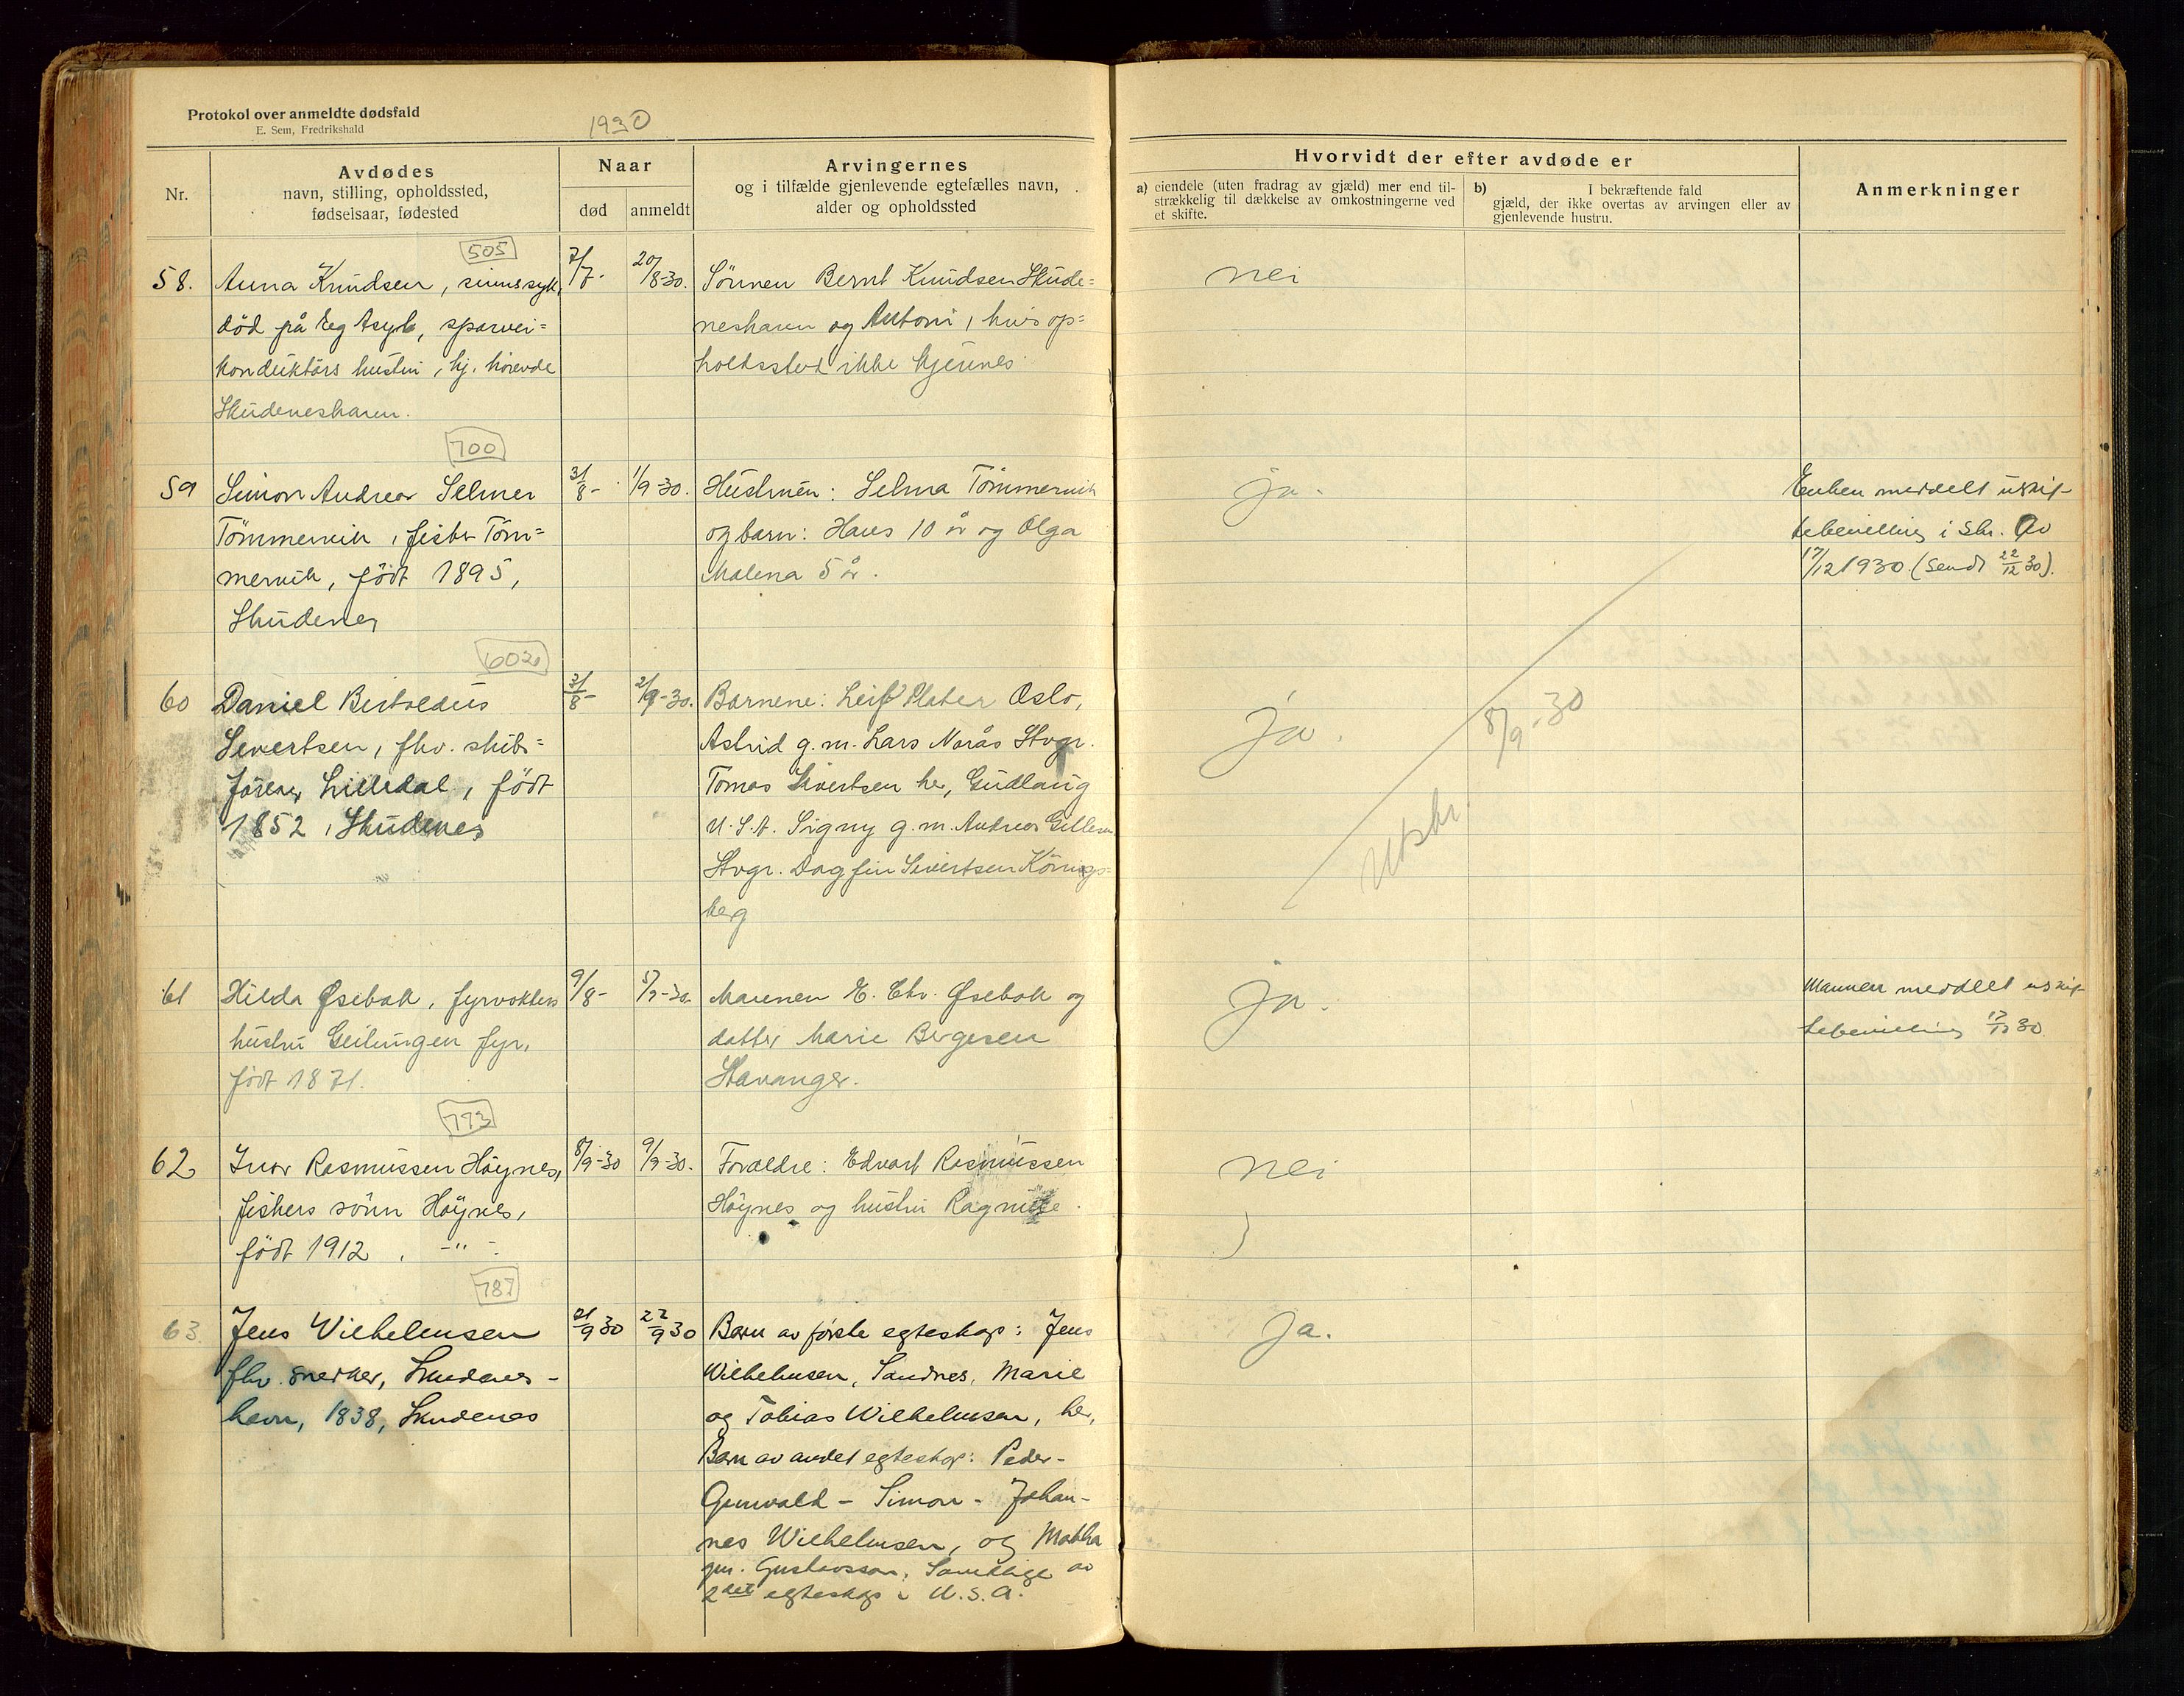 Protokol over anmeldte dødsfald
E. Sem, Fredrikshald
1930
Nr.
Avdødes
navn, stilling, opholdssted,
fødselsaar, fødested
Naar
død
anmeldt
Arvingernes
og i tilfælde gjenlevende egtefælles navn,
alder og opholdssted
Hvorvidt der efter avdøde er
a) eiendele (uten fradrag av gjæld) mer end til-
strækkelig til dækkelse av omkostningerne ved
et skifte.
b) I bekræftende fald
gjæld, der ikke overtas av arvingen eller av
gjenlevende hustru.
Anmerkninger
505
58. Anna Knudsen, sinnssyk,
død på Eg Asyl, sporvei=
konduktørs hustru, hj. hörende
Skudeneshavn.
7/7-
20/8-30.
Sönnen Bernt Knudsen Skude=
neshavn og Antoni, hvis op=
holdssted ikke kjennes
nei
700
59 Simon Andreas Selmer
Tömmervik, fisker Töm=
mervik, født 1895,
Skudenes
31/8-
1/9-30.
Hustruen: Selma Tömmervik
og barn: Hans 10 år og Olga
Malena 5 år.
ja.
Enken meddelt uskif-
tebevilling i Skr. av
17/12 1930. (Sendt 22/12 30).
602
60 Daniel Bertoldus
Severtsen, fhv. skibs=
förer, Lilledal, född
1852, Skudenes
31/8-
2/9-30.
Barnene: Leif Plater Oslo,
Astrid g.m. Lars Norås Stvgr.
Tomas Sivertsen her, Gudlaug
U.S.A. Signy g.m. Andreas
Stvgr. Dagfin Sivertsen Königs=
berg
ja.
Utskr. 8/9-30
61 Hilda Øsebak, fyrvokters
hustru Geitungen fyr,
født 1871.
9/8-
5/9-30.
Mannen E. Chr. Øsebak og
datter Marie Bergesen
Stavanger.
ja.
Mannen meddelt uskif-
tebevilling 17/12 30
773
62 Ivar Rasmussen Höynes,
fiskers sönn Höynes,
född 1912, -"-
8/9-30
9/9-30.
Foreldre: Edvart Rasmussen
Höynes og hustru
nei
787
63. Jens Wilhelmsen
fhv. snekker, Skudenes-
havn, 1838, Skudenes
21/9 30
22/9 30
Barn av første egteskap: Jens
Wilhelmsen, Sandnes, Marie
og Tobias Wilhelmsen, her,
Barn av andet egteskap: Peder-
Gunvald - Simon - Johan-
nes Wilhelmsen, og Martha
gm. Gustavsson, Samtlige av
2det egteskap i U.S.A.
Ja.